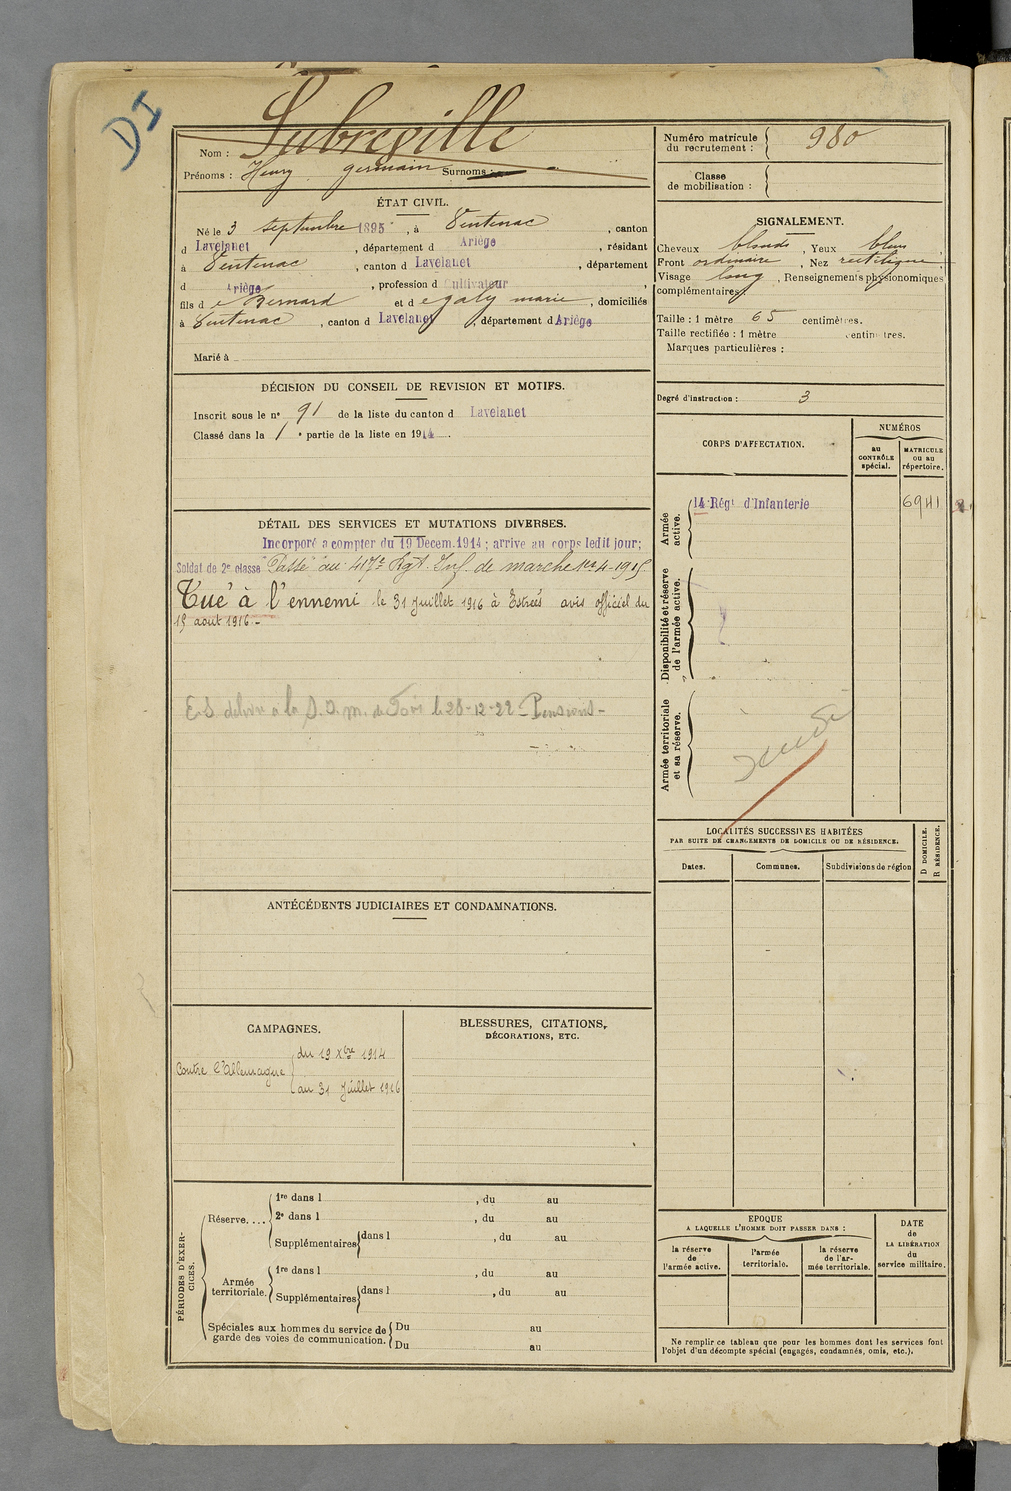 DI
Nom : Subreville
Prénoms : Henry germain Surnoms :
ÉTAT CIVIL.
Né le 3 septembre 1895, à Ventenac, canton
d Lavelanet, département d Ariège, résidant
à Ventenac, canton d Lavelanet, département
d Ariège, profession d Cultivateur,
fils d e Bernard et d e galy marie, domiciliés
à Ventenac, canton d Lavelanet, département d Ariège
Marié à
DÉCISION DU CONSEIL DE REVISION ET MOTIFS.
Inscrit sous le nº 91 de la liste du canton d Lavelanet
Classé dans la 1e partie de la liste en 1914.
DÉTAIL DES SERVICES ET MUTATIONS DIVERSES.
Incorporé à compter du 19 Decem. 1914 ; arrivé au corps ledit jour;
Soldat de 2e classe Passé au 417e Rgt. Inf. de marche 4-1915
Tué à l'ennemi le 31 Juillet 1916 à Estrées avis officiel du
15 août 1916 -
le 28-12-22 - Pensions -
ANTÉCÉDENTS JUDICIAIRES ET CONDAMNATIONS.
CAMPAGNES.
Contre l'Allemagne
du 19 Xbre 1914
au 31 Juillet 1916
BLESSURES, CITATIONS,
DÉCORATIONS, ETC.
PÉRIODES D'EXERCICES.
Réserve....
1re dans l , du au
2e dans l , du au
Supplémentaires dans l , du au
Armée territoriale.
1re dans l , du au
Supplémentaires dans l , du au
Spéciales aux hommes du service de garde des voies de communication.
Du au
Du au
Numéro matricule du recrutement : 980
Classe de mobilisation :
SIGNALEMENT.
Cheveux blonds, Yeux bleus,
Front ordinaire, Nez rectiligne,
Visage long, Renseignements physionomiques
complémentaires :
Taille : 1 mètre 65 centimètres.
Taille rectifiée : 1 mètre centimètres.
Marques particulières :
Degré d'instruction : 3
CORPS D'AFFECTATION.
NUMÉROS
au CONTRÔLE spécial.
MATRICULE ou au répertoire.
Armée active.
14e Régt d'Infanterie 6941
Disponibilité et réserve de l'armée active.
Armée territoriale et sa réserve.
LOCALITÉS SUCCESSIVES HABITÉES
PAR SUITE DE CHANGEMENTS DE DOMICILE OU DE RÉSIDENCE.
Dates.
Communes.
Subdivisions de région
D DOMICILE.
R RÉSIDENCE.
EPOQUE
A LAQUELLE L'HOMME DOIT PASSER DANS :
la réserve de l'armée active.
l'armée territoriale.
la réserve de l'armée territoriale.
DATE de LA LIBÉRATION du service militaire.
Ne remplir ce tableau que pour les hommes dont les services font
l'objet d'un décompte spécial (engagés, condamnés, omis, etc.).